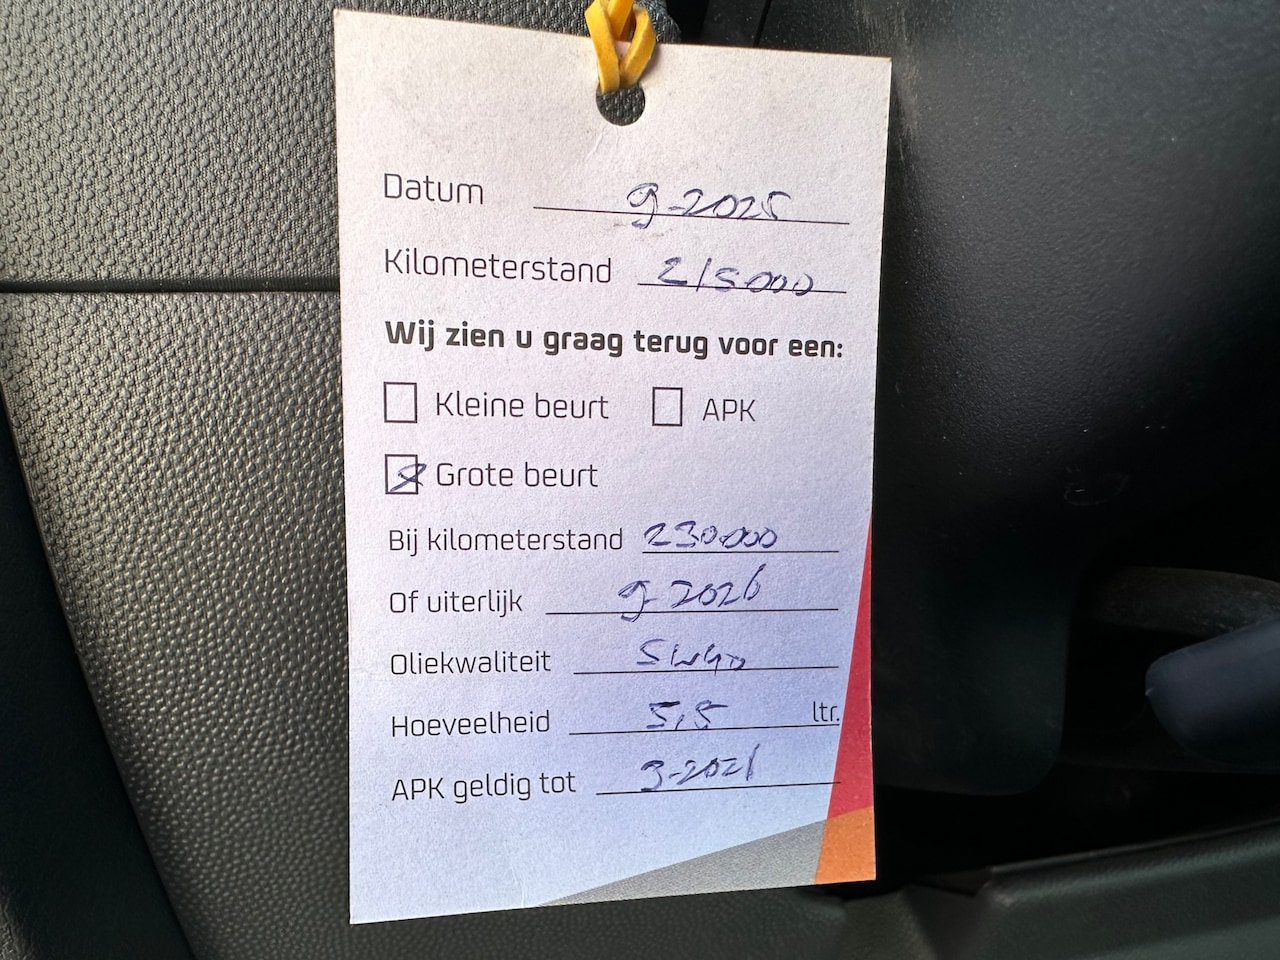 Datum 9-2025
Kilometerstand 215000
Wij zien u graag terug voor een:
Kleine beurt APK
Grote beurt
Bij kilometerstand 230.000
Of uiterlijk 9-2026
Oliekwaliteit 5W40
Hoeveelheid 5,5 ltr.
APK geldig tot